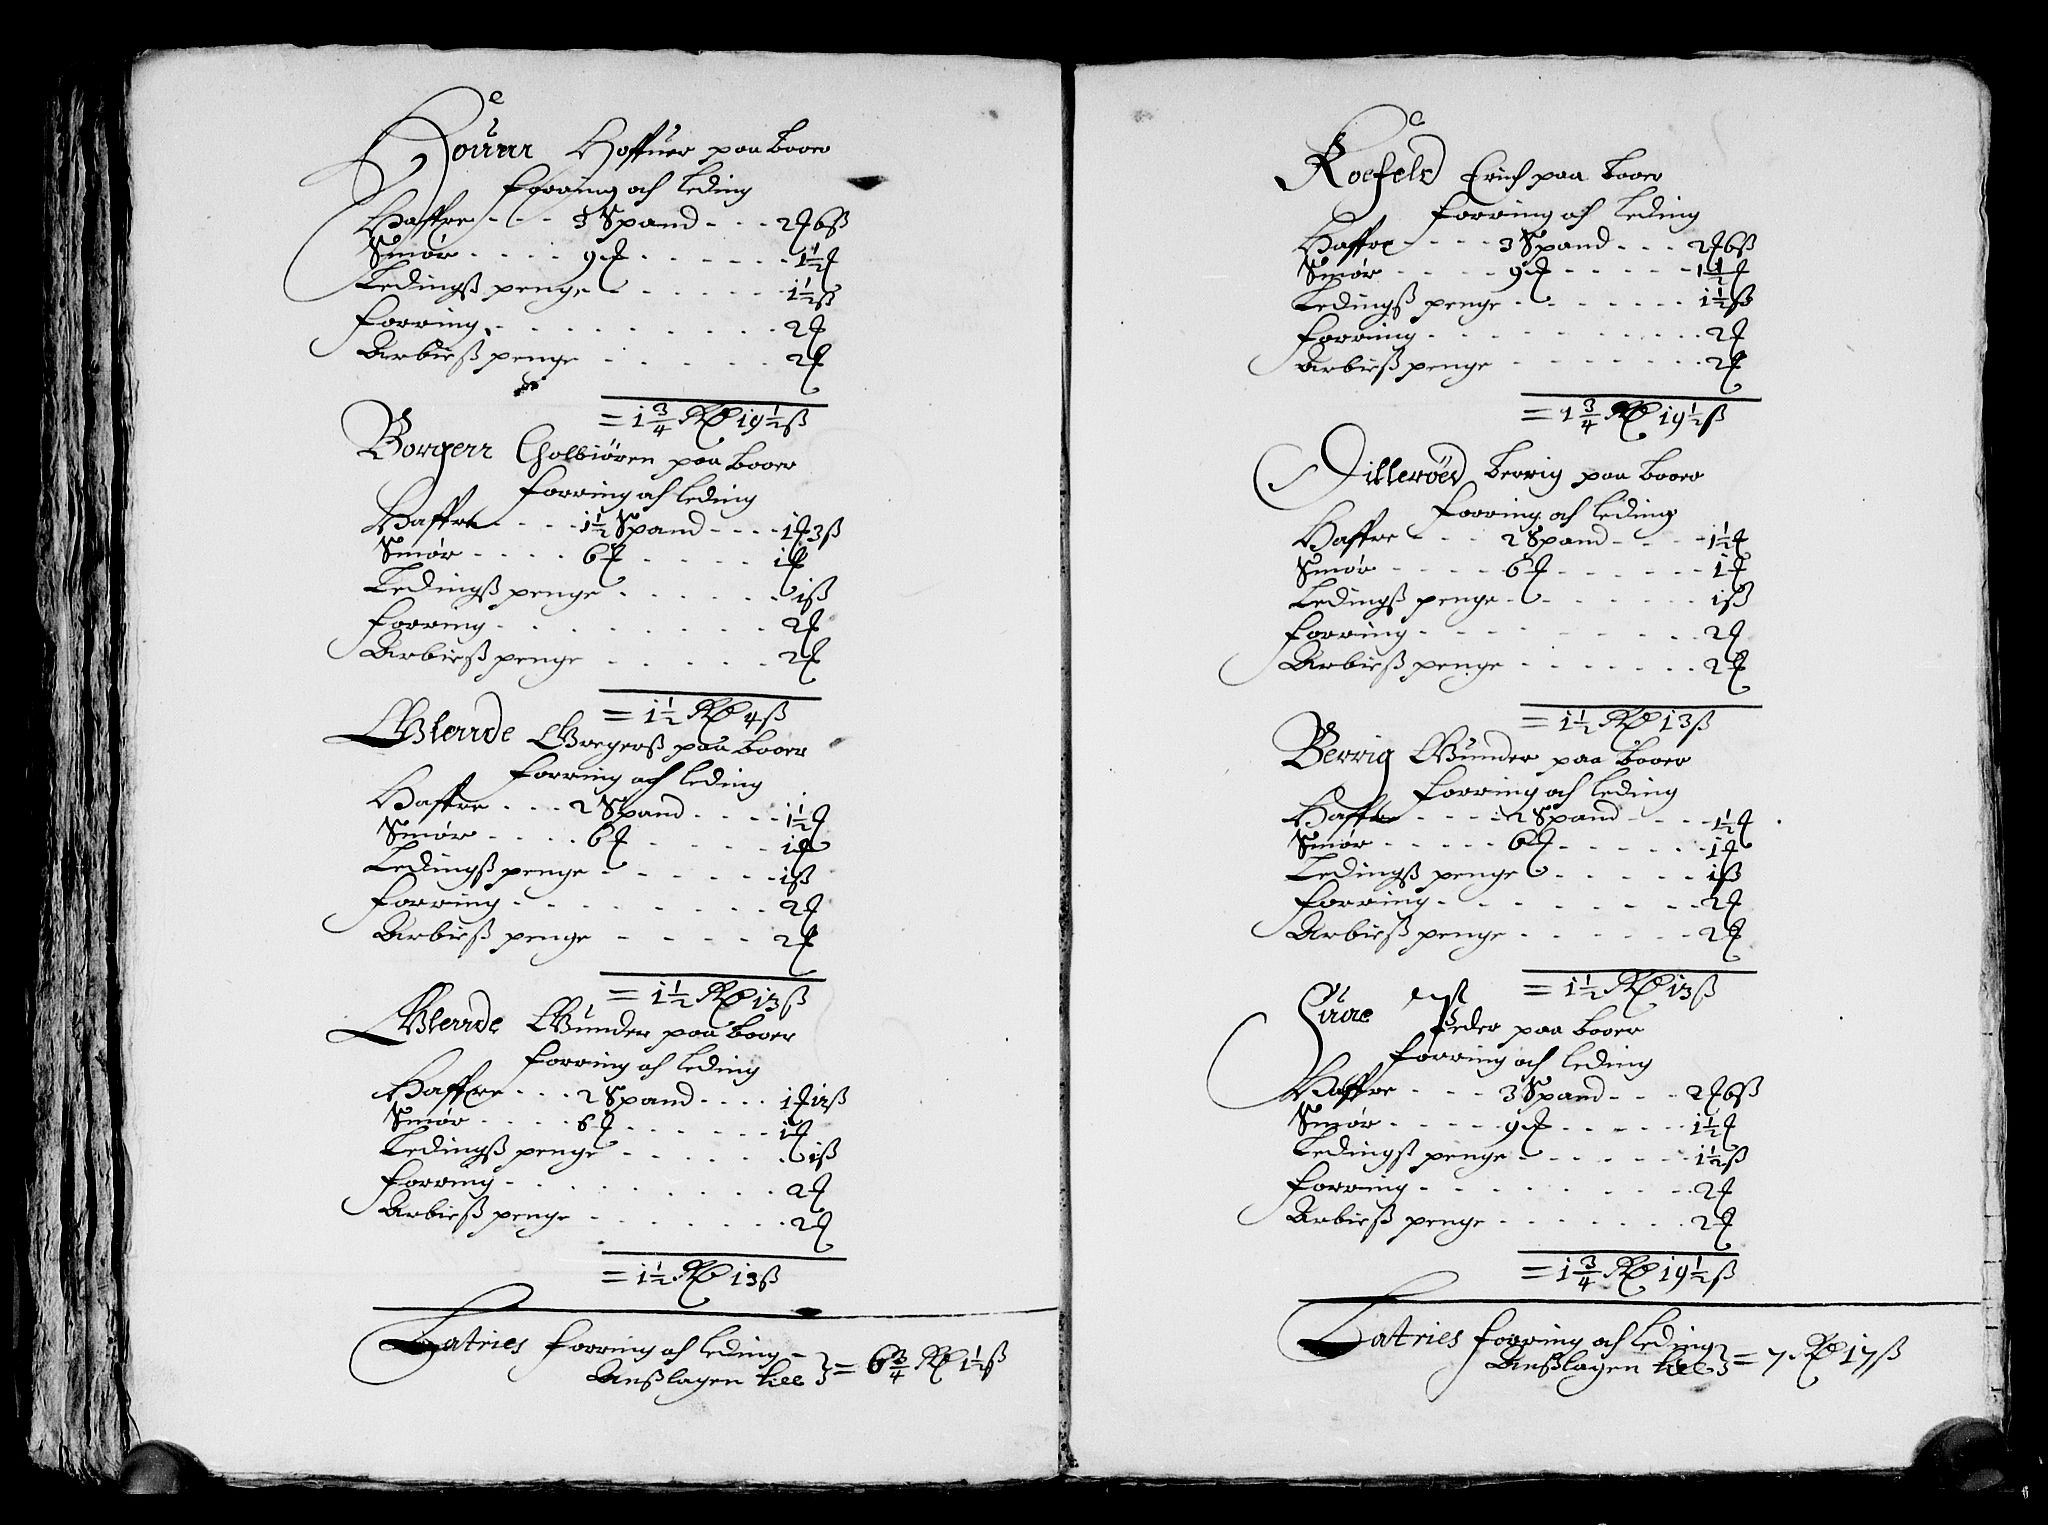 Houer Hoffuer paa booer
Forring och leding
Haffre - - - 3 Spand - - - 2 ₰ 6 ß
Smør - - - - 9 ₰ - - - - - - 1½ ₰
Ledingß penge - - - - - - 1½ ß
Forring - - - - - - - - - 2 ₰
Arbieß penge - - - - - 2 ₰
= 1¾ Rd 19½ ß
Borgerr Tholbiören paa booer
Forring och leding
Haffre - - - - 1½ Spand - - - - 1 ₰ 3 ß
Smør - - - - 6 ₰ - - - - - 1 ₰
Ledingß penge - - - - - - 1 ß
Forring - - - - - - - - - 2 ₰
Arbieß penge - - - - - 2 ₰
= 1½ Rd 4 ß
Wlerrde Gregerß paa booer
Forring och leding
Haffre - - - 2 Spand - - - - 1½ ₰
Smør - - - - 6 ₰ - - - - - 1 ₰
Ledingß penge - - - - - - 1 ß
Forring - - - - - - - - 2 ₰
Arbieß penge - - - - 2 ₰
= 1½ Rd 13 ß
Wlerrde Gunder paa booer
Forring och leding
Haffre - - - 2 Spand - - - - 1 ₰ 12 ß
Smør - - - - 6 ₰ - - - - - - 1 ₰
Ledingß penge - - - - - - 1 ß
Forring - - - - - - - - - 2 ₰
Arbieß penge - - - - - - 2 ₰
= 1½ Rd 13 ß
Latries Forring och leding -
Anßlagen till = 6¾ Rd 1½ ß
Roefeld Erich paa booer
Forring och leding
Haffre - - - - 3 Spand - - - 2 ₰ 6 ß
Smør - - - - - 9 ₰ - - - - - 1½ ₰
Ledingß penge - - - - - - 1½ ß
Forring - - - - - - - - 2 ₰
Arbieß penge - - - - - - - 2 ₰
= 1¾ Rd 19½ ß
Dilleröed berrig paa booer
Forring och leding
Haffre - - - 2 Spand - - - - 1½ ₰
Smør - - - - - 6 ₰ - - - - - 1 ₰
Ledingß penge - - - - - - 1 ß
Forring - - - - - - - - 2 ₰
Arbieß penge - - - - - - - 2 ₰
= 1½ Rd 13 ß
Berrig Gunder paa booer
Forring och leding
Haffre - - - - 2 Spand - - - - 1½ ₰
Smør - - - - - 6 ₰ - - - - - - 1 ₰
Ledingß penge - - - - - - 1 ß
Forring - - - - - - - - 2 ₰
Arbieß penge - - - - - - 2 ₰
= 1½ Rd 13 ß
Peder paa booer
Forring och leding
Haffre - - - 3 Spand - - - 2 ₰ 6 ß
Smør - - - - - 9 ₰ - - - - - 1½ ₰
Ledingß penge - - - - - - 1½ ß
Forring - - - - - - - - 2 ₰
Arbieß penge - - - - - - - 2 ₰
= 1¾ Rd 19½ ß
Latries Forring och leding
Anßlagen till = 7 Rd 17 ß